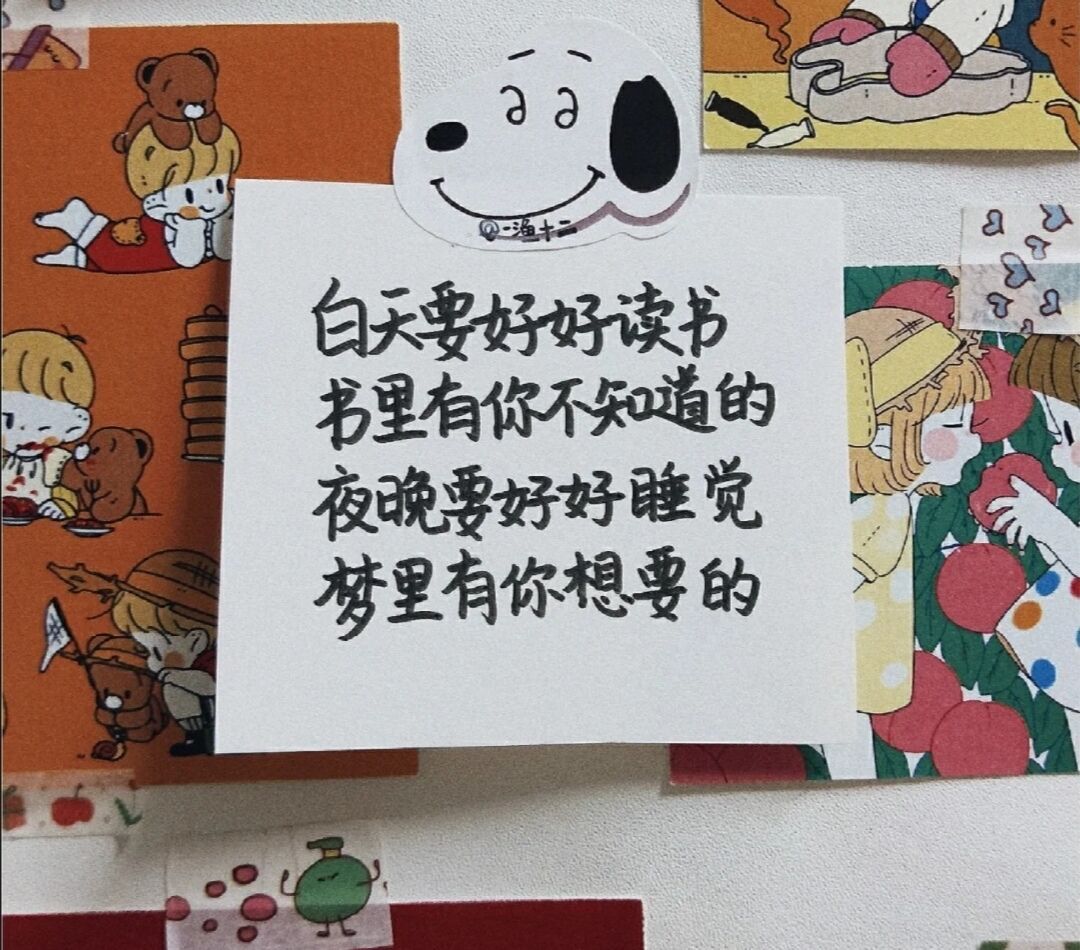 @一渔十二
白天要好好读书
书里有你不知道的
夜晚要好好睡觉
梦里有你想要的